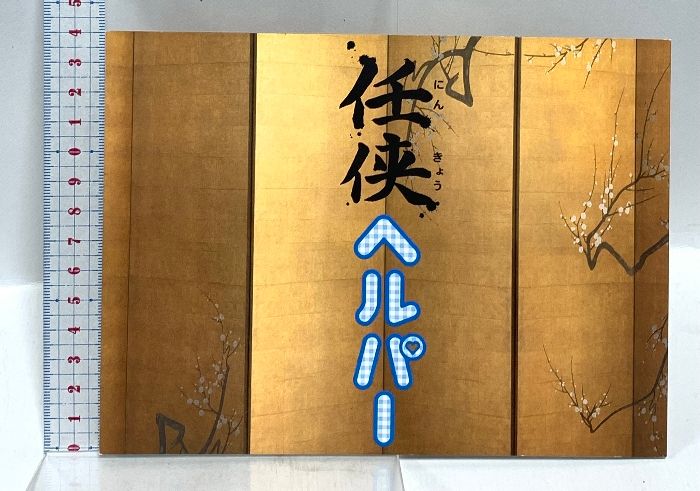 任侠
にんきょう
ヘルパー
0 1 2 3 4 5 6 7 8 9 0 1 2 3 4 5